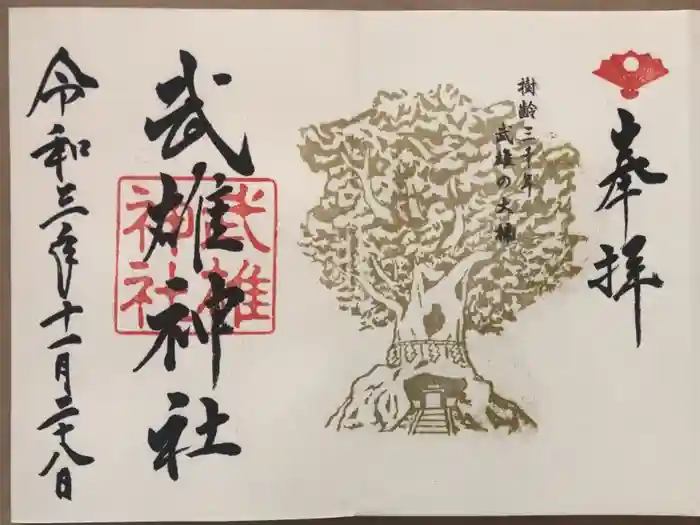 奉拝
樹齢三千年
武雄の大楠
武雄神社
武雄
神社
令和三年十一月二十八日